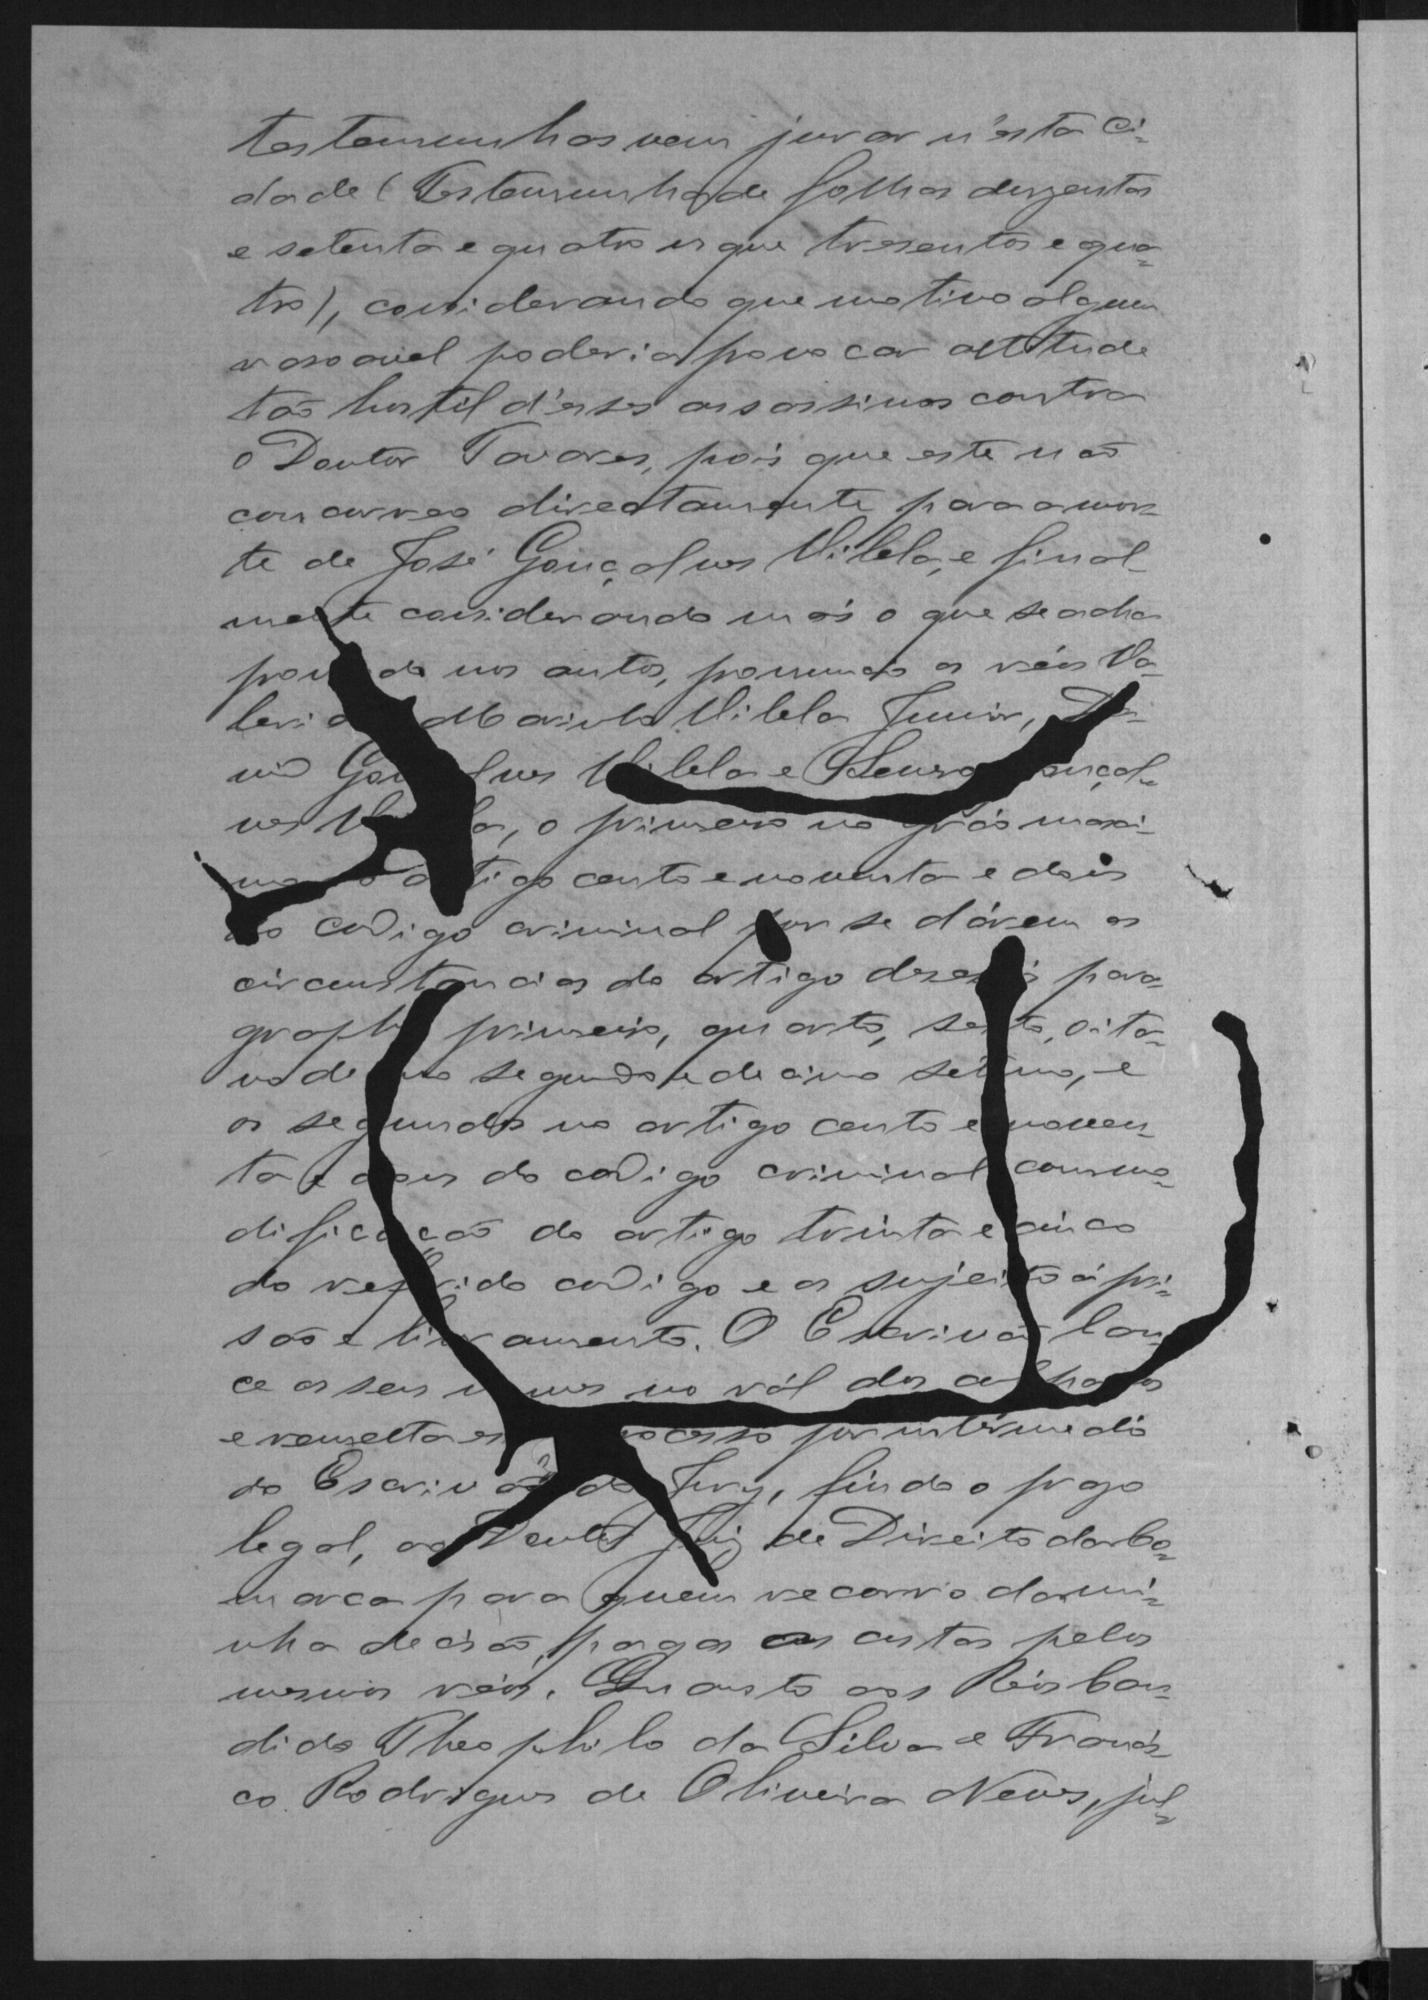 testemunhas vem jurar n'esta ci-
dade (Testemunha de folhas duzentas
e setenta e quatro usque tresentos e qua-
tro), considerando que motivo algum
rasoavel poderia provocar attitude
tão hostil d'esses assassinos contra
o Doutor Tavares, pois que este não
concorreo directamente para a mor-
te de José Gonçalves Vilela, e final-
mente considerando mais o que se acha
provado nos autos, pronuncio os réos Va-
leri Marinho Vilela Junior,
nio Gonçalves Vilela e Gonçal-
ves Vilela, o primeiro no gráo maxi-
mo do artigo cento e noventa e dois
do codigo criminal por se dárem as
circunstancias do artigo deseseis para-
grapho primeiro, quarto, sexto, oita-
vo decimo segundo e decimo setimo, e
os segundos no artigo cento e noven-
ta e dois do codigo criminal com mo-
dificação do artigo trinta e cinco
do referido codigo e os sujeito á pri-
são e livramento. O Escrivão lan-
ce os seus nomes no ról dos culpados
e remetta este processo por intermedio
do Escrivão do Jury, findo o praso
legal, ao Doutor Juiz de Direito da Co-
marca para quem recorro da mi-
nha decisão, pagas as custas pelos
mesmos réos. Quanto aos Réos Can-
dido Theophilo da Silva e Francis-
co Rodrigues de Oliveira Neves, jul-